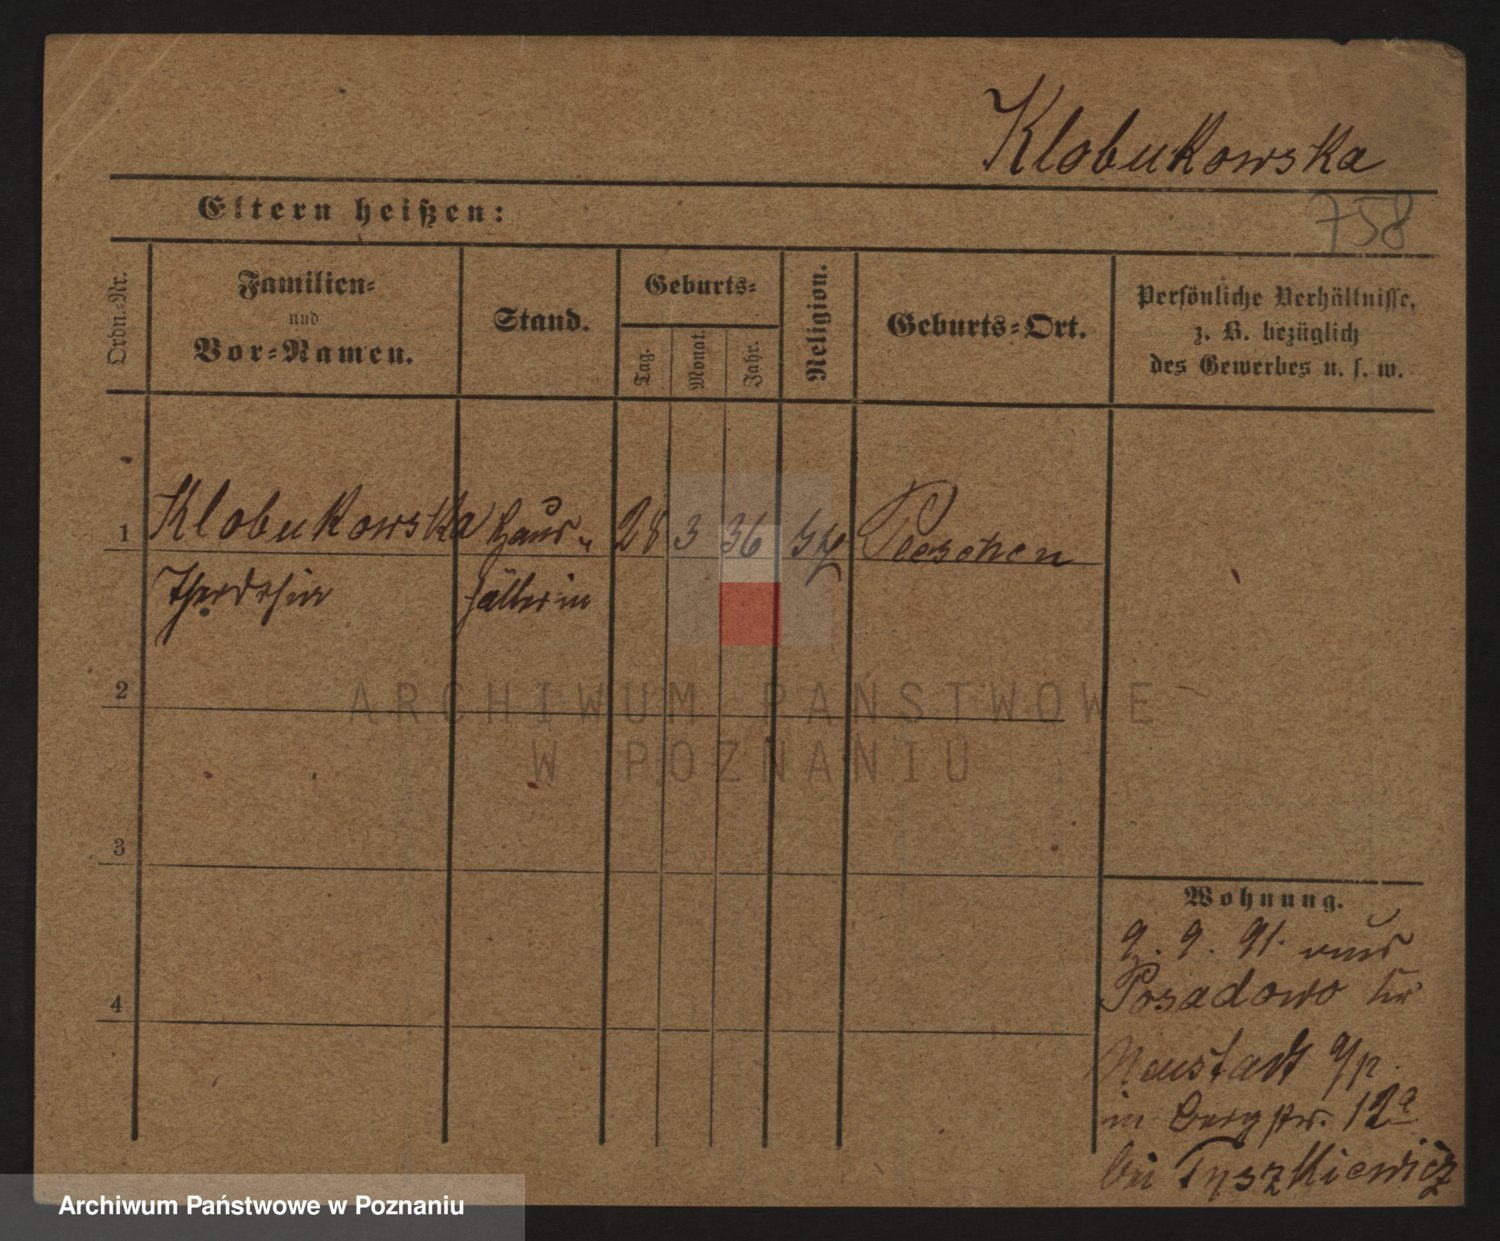 Klobukowska
Eltern heißen:
758
Ordn.-Nr.
Familien-
und
Vor-Namen.
Stand.
Geburts-
Tag.
Monat.
Jahr.
Religion.
Geburts-Ort.
Persönliche Verhältnisse,
z. B. bezüglich
des Gewerbes u. s. w.
1
Klobukowska Haus- 28 3 36 Pleschen
hälterin
2
3
4
Wohnung.
9. 9. 91. aus
Posadowo
Neustadt a/p.
in Bergstr. 12a
bei Tyszkiewicz
ARCHIWUM PAŃSTWOWE
W POZNANIU
Archiwum Państwowe w Poznaniu